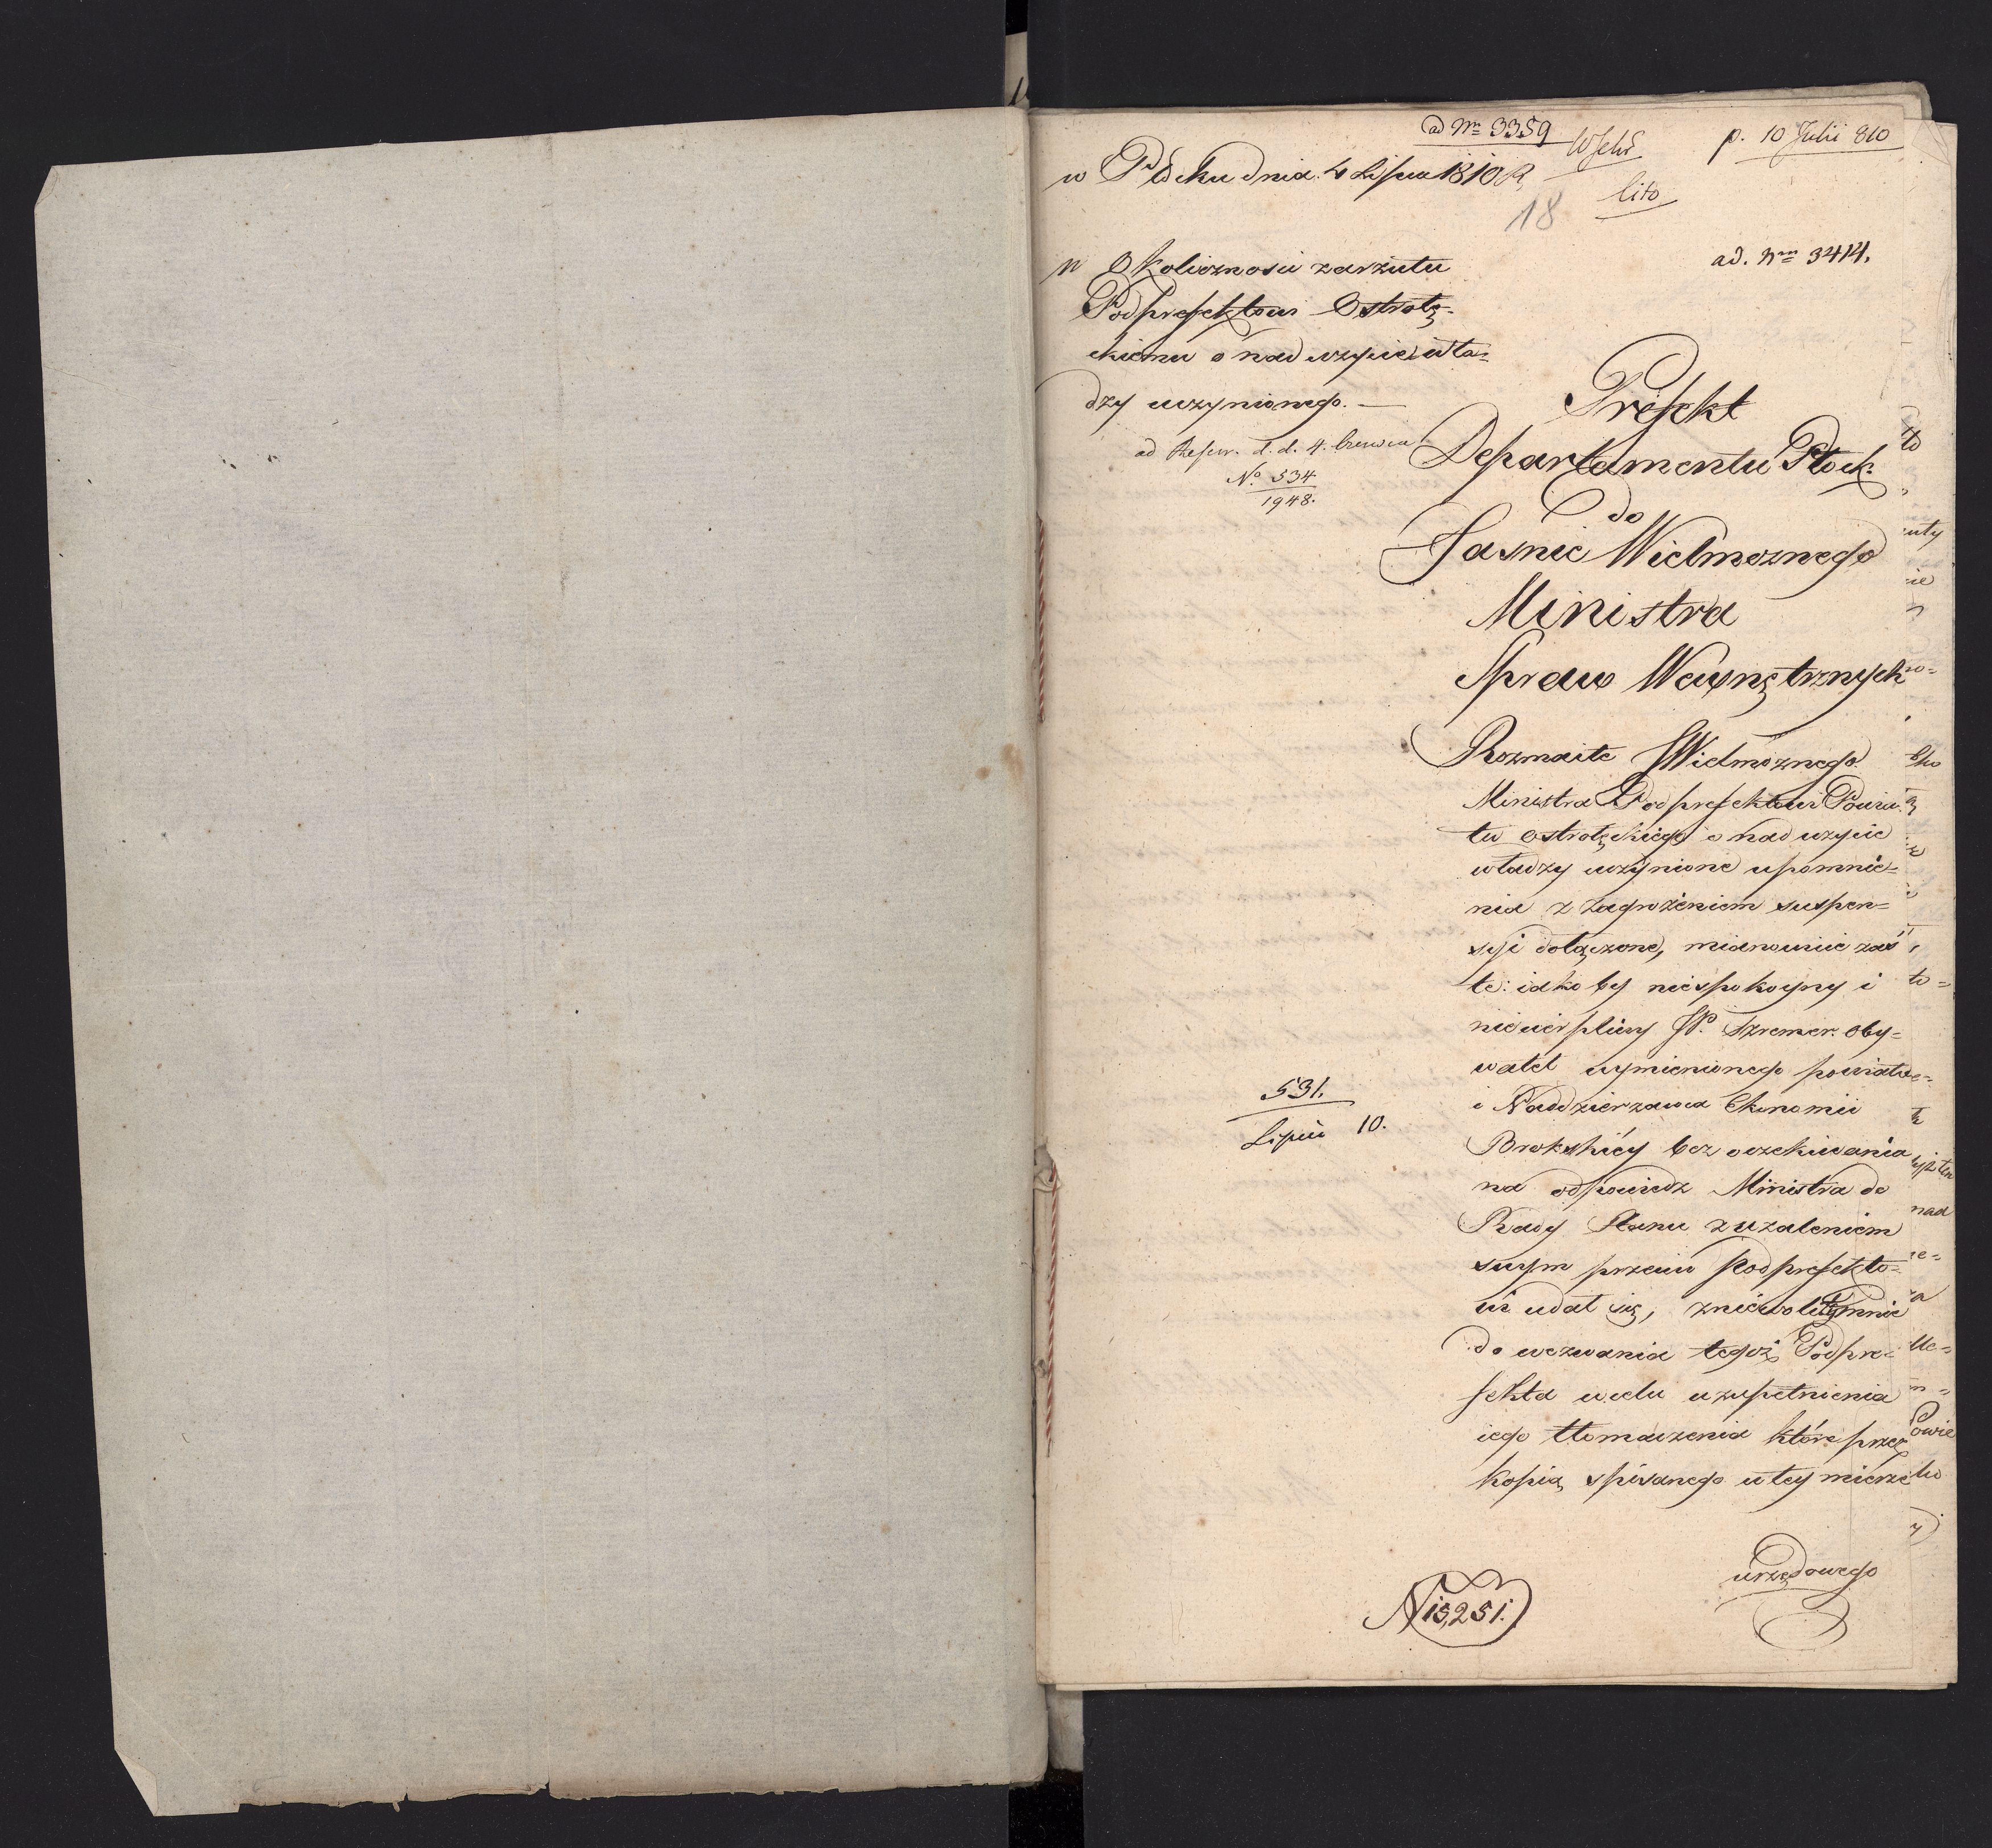 ad Nrm 3359
p. 10 Julii 810
w Płocku dnia 4 Lipca 1810 R
cito
18
ad. Nrm 3414.
w Okolicznosci zarzutu
Podprefektowi Ostrołę-
ckiemu o nadużycie wła=
dzy uczynionego. —
ad Rescr. d. d. 4. Czerwca
No. 534
1948.
Prefekt
Departamentu Płock:
do
Jasnie Wielmoznego
Ministra
Spraw Wewnętrznych
Rozmaite JWielmoznego
Ministra Podprefektowi Powia-
tu Ostrołęckiego o nadużycie
władzy uczynione upomnie=
nia z zagrożeniem suspen=
syi dołączone, mianowicie zaś
te: iakoby niespokoyny i
niecierpliwy JP. Szremer oby=
watel wymienionego powiatu
i Naddzierzawca Ekonomii
Brokskiéy bez oczekiwania
na odpowiedz Ministra do
Rady Stanu z uzaleniem
swym przeciw Podprefekto=
wi udał się, zniewoliły mnie
do wezwania tegoż Podpre-
fekta w celu uzupełnienia
iego tłomaczenia które przez
kopią spisanego w tey mierze
urzędowego
531.
Lipca 10.
N 15,251.